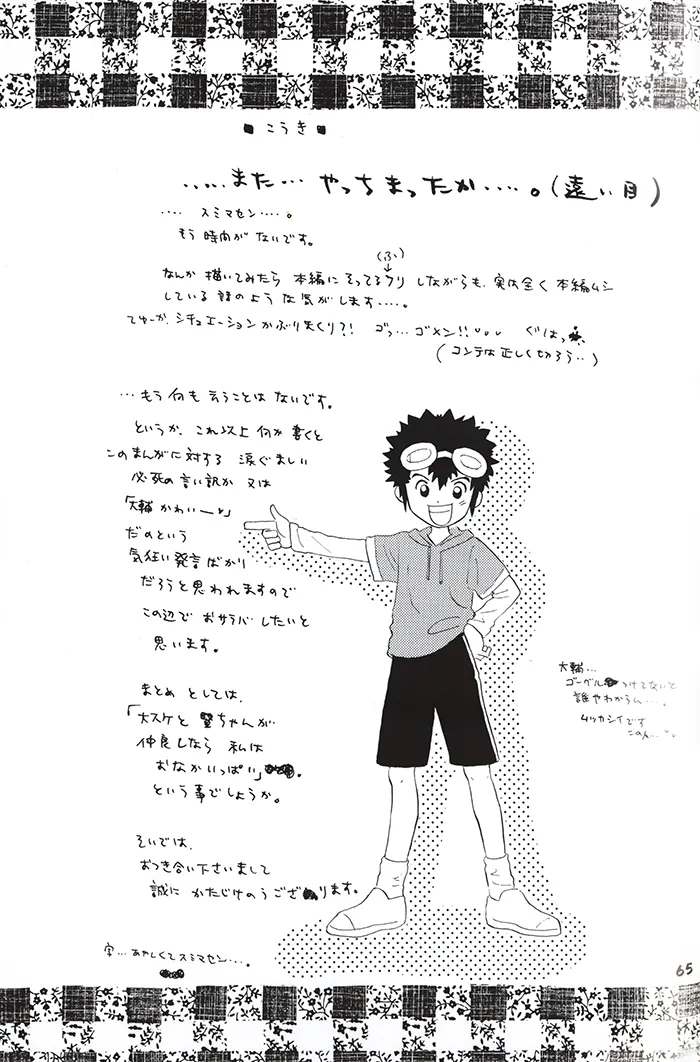 ■ こうき ■
‥‥‥また‥‥ やっちまったか‥‥‥。(遠い目)
‥‥ スミマセン‥‥。
もう 時間が ないです。
(ふ)
↓
なんか 描いてみたら 本編に そってるフリ しながらも、実は全く 本編ムシ
している 話のよう な 気がします‥‥。
てゆーか、シチュエーション かぶりまくり?! ゴッ‥‥ ゴメン!! ぐはっ
(コンテは正しく切ろう‥)
‥‥もう 何も 云うことは ないです。
というか、これ以上 何か 書くと
このまんがに対する 涙ぐましい
必死の言い訳か 又は
「大輔 かわいー♥」
だのという
気狂い発言ばかり
だろうと思われますので
この辺で おサラバ したいと
思います。
まとめ としては、
「大スケと 賢ちゃんが
仲良しなら 私は
おなか いっぱい」
という 事でしょうか。
そいでは、
おつき合い下さいまして
誠に かたじけのう ござります。
字‥‥あやしくてスミマセン‥‥。
大輔‥‥
ゴーグル つけてないと
誰やわからん‥‥。
ムツカシイです
この人‥‥
65